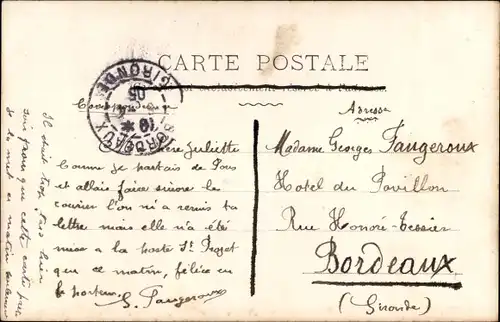 CARTE POSTALE
Correspondance
Adresse
BORDEAUX
GIRONDE
05
Chère Juliette
Comme je partais de Pons
et allais faire suivre le
courier l'on m'a remis ta
lettre mais elle n'a été
mise a la poste St Projet
que ce matin, félice en
le porteur.
G. Faugeroux
Il était trop tard hier
soir pour que cette carte parte
Madame Georges Faugeroux
Hotel du Pavillon
Rue Honoré-Tessier
Bordeaux
(Gironde)